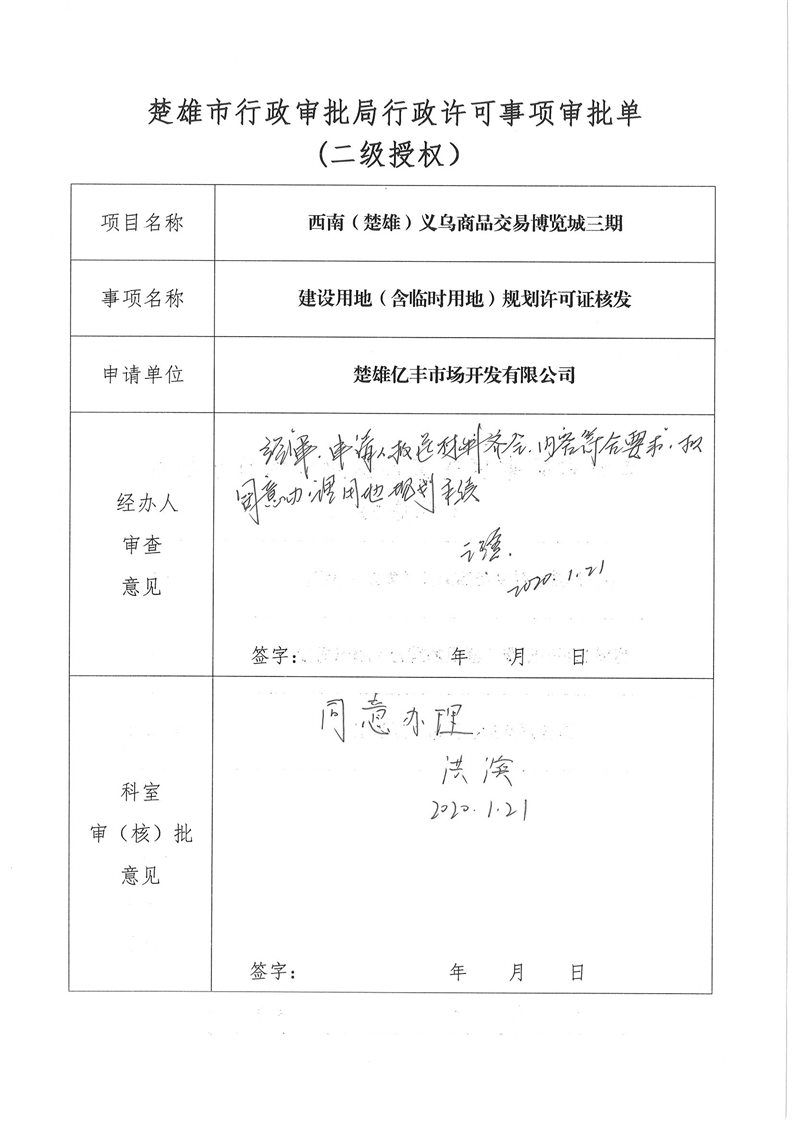 楚雄市行政审批局行政许可事项审批单
(二级授权）
项目名称 西南（楚雄）义乌商品交易博览城三期
事项名称 建设用地（含临时用地）规划许可证核发
申请单位 楚雄亿丰市场开发有限公司
经办人
审查
意见
经审，申请人报送材料齐全，内容符合要求，拟
同意办理用地规划手续
2020.1.21
签字： 年 月 日
科室
审（核）批
意见
同意办理
洪涣
2020.1.21
签字： 年 月 日